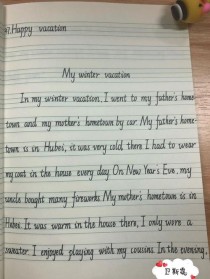 Happy vacation
My winter vacation
In my winter vacation, I went to my father's home-
town and my mother's hometown by car. My father's home-
town is in Hubei, it was very cold there. I had to wear
my coat in the house every day. On New Year's Eve, my
uncle bought many fireworks. My mother's hometown is in
Hubei. It was warm in the house there, I only wore a
sweater. I enjoyed playing with my cousins. In the evening,